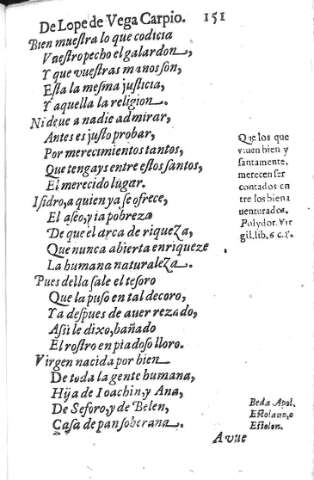 De Lope de Vega Carpio. 151
Bien muestra lo que codicia
Vuestro pecho el galardon,
Y que vuestras manos son,
Esta la mesma justicia,
Y aquella la religion.
Ni deue a nadie admirar,
Antes es justo probar,
Por merecimientos tantos,
Que tengays entre estos santos,
El merecido lugar.
Isidro, a quien ya se ofrece,
El aseo, y la pobreza
De que el arca de riqueza,
Que nunca abierta enriqueze
La humana naturaleza.
Pues della sale el tesoro
Que la puso en tal decoro,
Ya despues de auer rezado,
Assi le dixo, bañado
El rostro en piadoso lloro.
Virgen nacida por bien
De toda la gente humana,
Hija de Ioachin, y Ana,
De Seforo, y de Belen,
Casa de pan soberana.
Que los que
viuen bien y
santamente,
merecen ser
contados en
tre los biena
uenturados.
Polydor. Vir
gil. lib. 6 c. 5.
Beda Apol.
Estolano, o
Estolon.
A vue